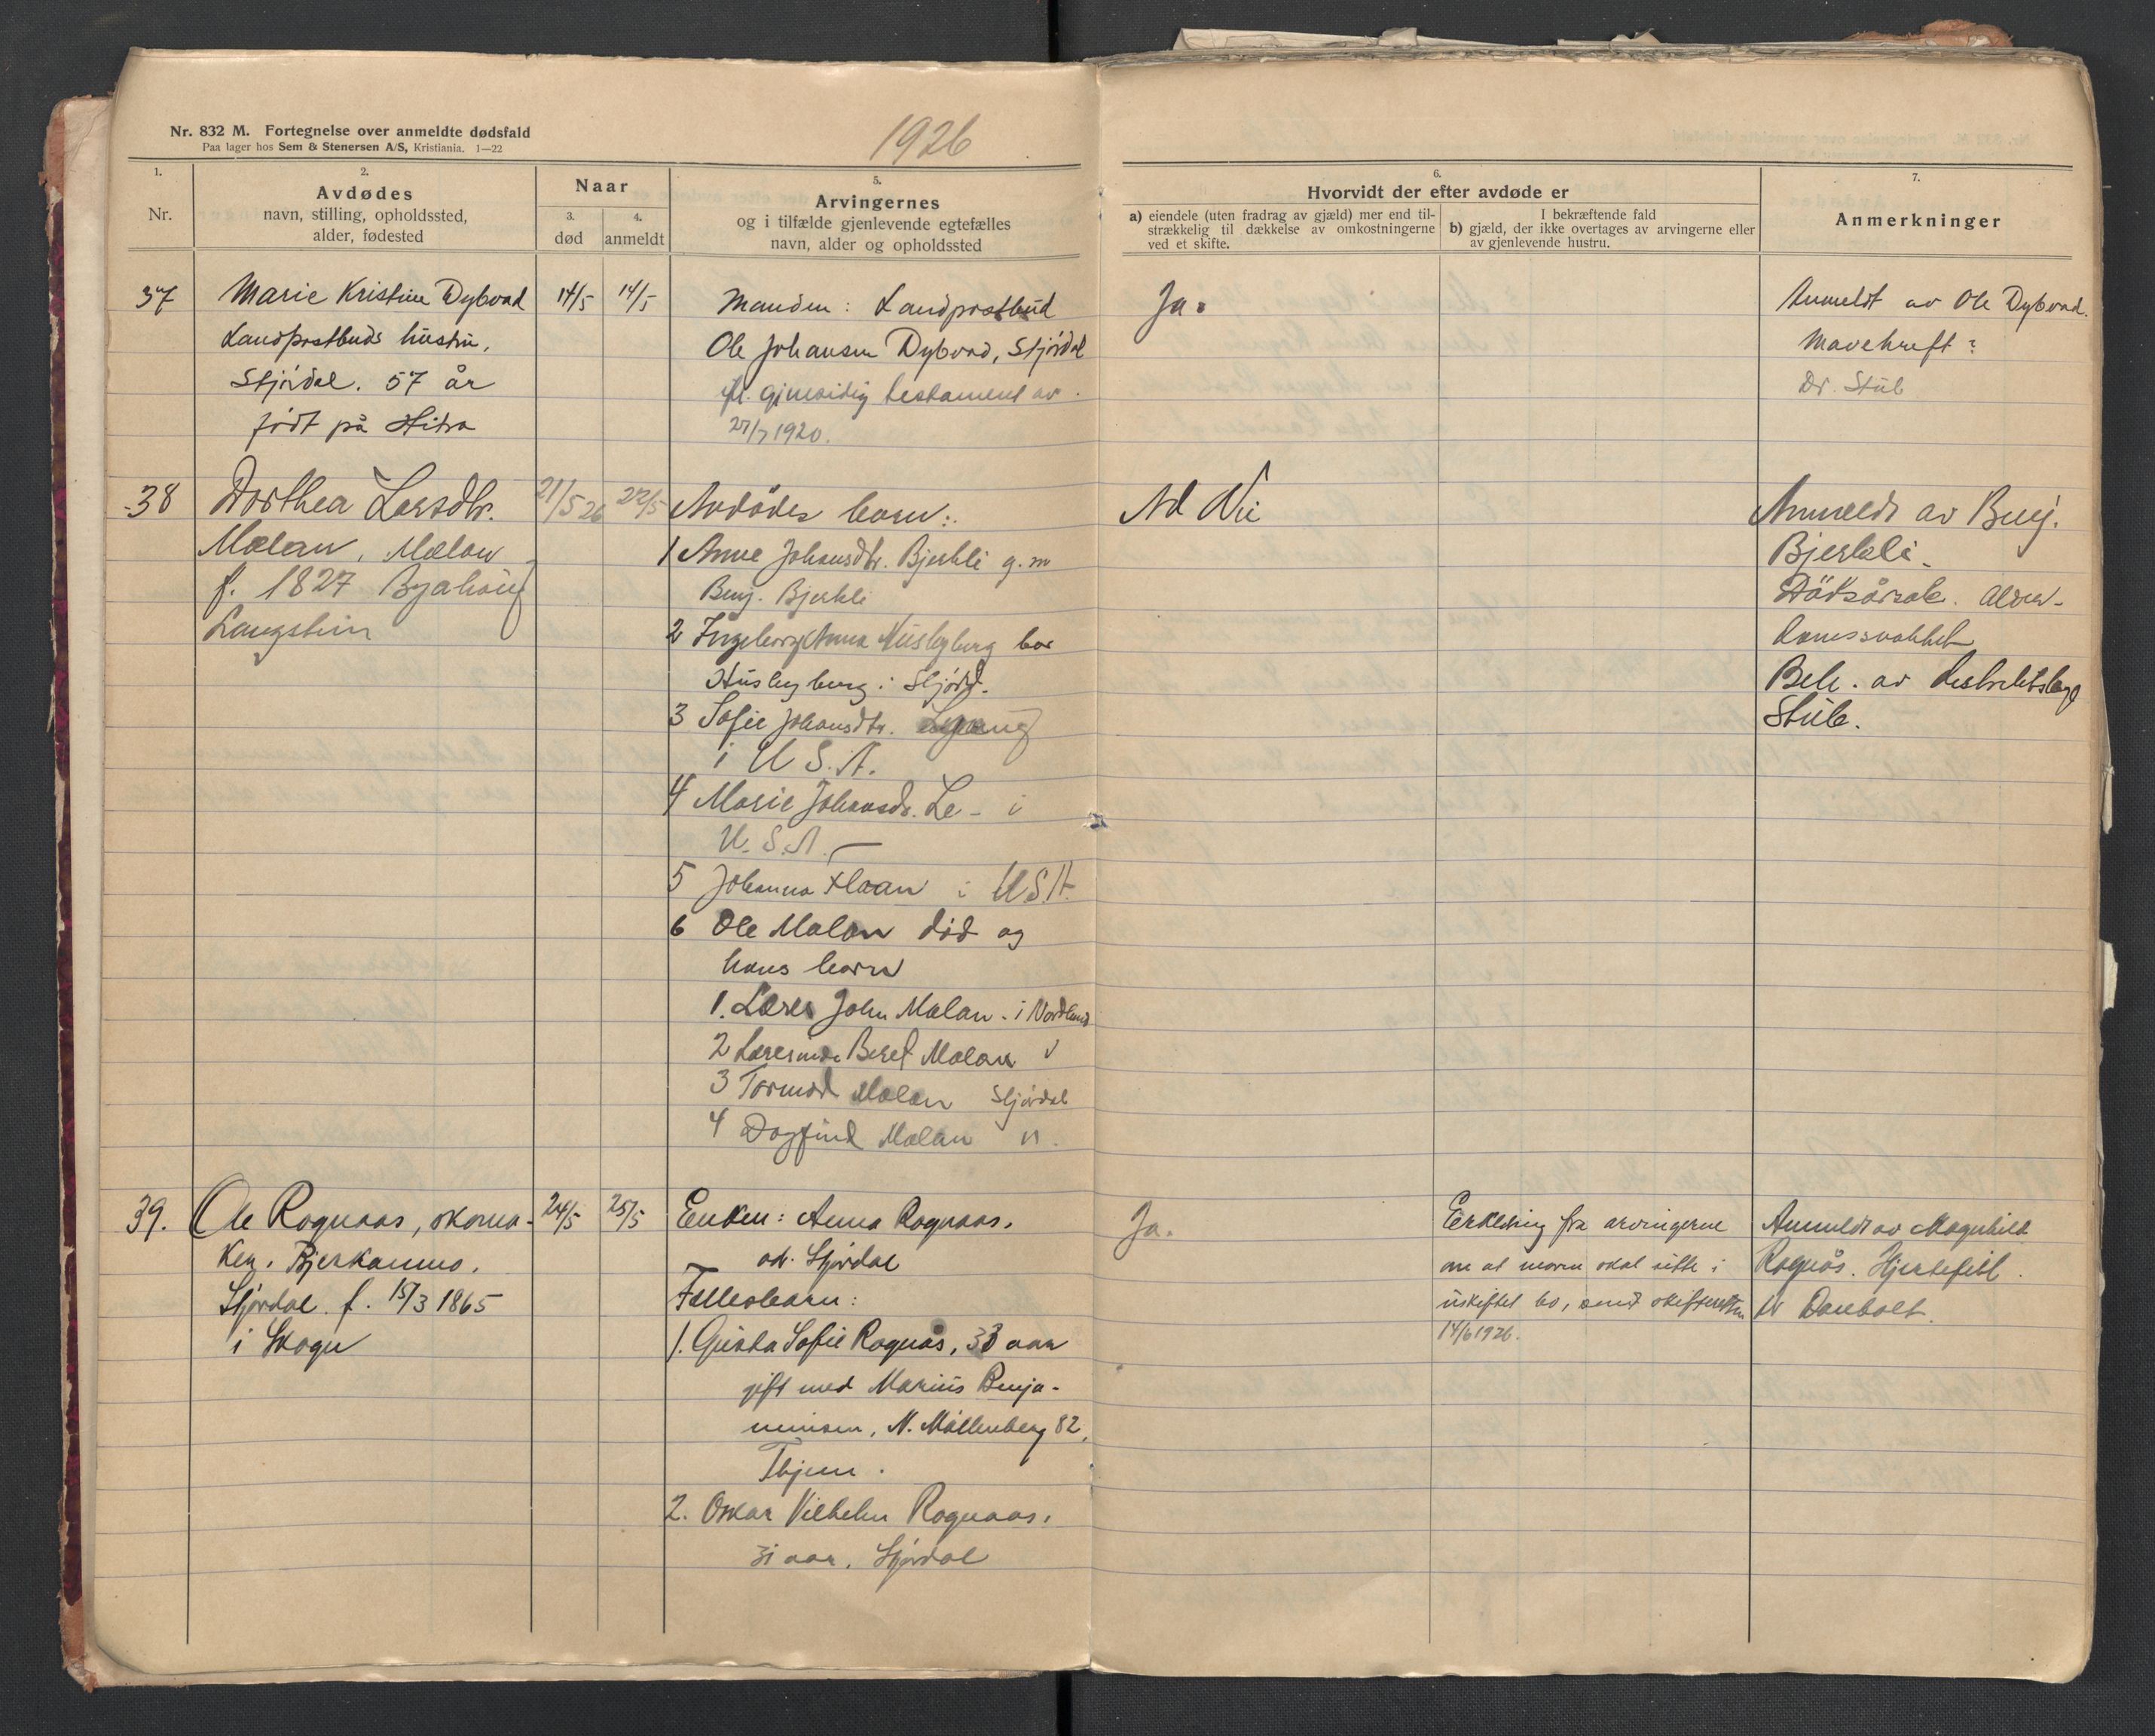 Nr. 832 M. Fortegnelse over anmeldte dødsfald
Paa lager hos Sem & Stenersen A/S, Kristiania. 1—22
1926
1.
Nr.
2.
Avdødes
navn, stilling, opholdssted,
alder, fødested
Naar
3.
død
4.
anmeldt
5.
Arvingernes
og i tilfælde gjenlevende egtefælles
navn, alder og opholdssted
6.
Hvorvidt der efter avdøde er
a) eiendele (uten fradrag av gjæld) mer end til-
strækkelig til dækkelse av omkostningerne
ved et skifte.
I bekræftende fald
b) gjæld, der ikke overtages av arvingerne eller
av gjenlevende hustru.
7.
Anmerkninger
37
Marie Kristine Dybvad
Landpostbuds hustru,
Stjördal. 57 år
født på Hitra
14/5
14/5
Manden: Landpostbud
Ole Johansen Dybvad, Stjördal
gjensidig testament av
1920.
Ja.
Anmeldt av Ole Dybvad.
Mavekreft?
Dr. Stub
38
Dorthea Larsdtr.
Mælan, Mælan
f. 1827
Langstein
21/5 26
22/5
Avdödes barn:
1 Anne Johansdtr. Bjerkli g.m
Benj. Bjerkli
2 Ingeborg Anna Husbyberg bor
Husbyberg i Stjørd.
3 Sofie Johansdtr.
i U.S.A.
4 Marie Johansdr. Le - i
U.S.A. —
5 Johanna Haan i U.S.A.
6 Ole Mælan död og
hans barn
1. Lærer John Mælan - i Nordland
2 Lærerinde Beret Mælan
3 Tormod Mælan Stjørdal
4 Dagfind Mælan "
Nei
Anmeldt av Benj.
Bjerkli.
Dödsårsak. Alder-
domssvakhet
Beh. av distriktslæge
Stub.
39.
Ole Rognaas, skoma-
ker. Bjerkanmo.
Stjørdal. f. 15/3 1865
i Skogn
24/5
25/5
Enken: Anna Rognaas.
adr. Stjørdal
Fellesbarn:
1. Gusta Sofie Rognås, 33 aar
gift med Marius Benja-
minsen, N. Møllenberg 82,
Thjem.
2. Oskar Vilhelm Rognaas.
31 aar. Stjørdal
Ja.
Erklæring fra arvingerne
om at moren skal sitte i
uskiftet bo, send skifteretten
14/6 1926.
Anmeldt av Magnhild
Rognås. Hjertefeil.
Dr Danbolt.